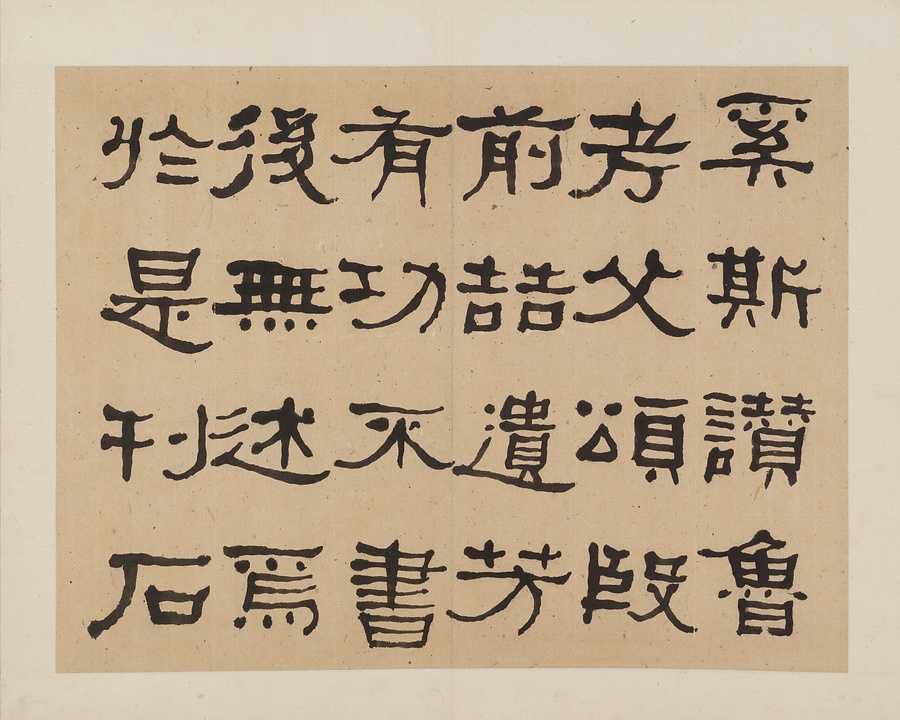 奚斯讚魯
考父頌殷
前喆遺芳
有功不書
後無述焉
於是刊石